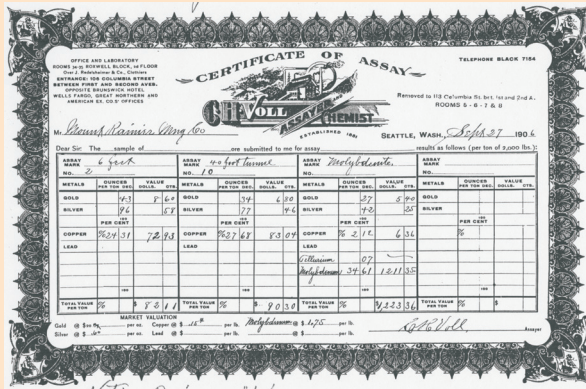 CERTIFICATE OF ASSAY
OFFICE AND LABORATORY
ROOMS 30-31 ROXWELL BLOCK, 1st FLOOR
Over J. Redelsheimer & Co., Clothiers
ENTRANCE: 108 COLUMBIA STREET
BETWEEN FIRST AND SECOND AVES.
OPPOSITE BRUNSWICK HOTEL
WELLS FARGO, GREAT NORTHERN AND
AMERICAN EX. CO.S' OFFICES
TELEPHONE BLACK 7154
Removed to 113 Columbia St. bet. 1st and 2nd A.
ROOMS 5 - 6 - 7 & 8
C.H. VOLL
ASSAYER CHEMIST
ESTABLISHED 1881
M Mount Rainier Mng Co
SEATTLE, WASH., Sept 27 1906
Dear Sir: The sample of are submitted to me for assay results as follows (per ton of 2,000 lbs.):
ASSAY MARK 6 feet
No. 2
METALS OUNCES PER TON DEC. VALUE DOLLS. CTS.
GOLD 43 8 60
SILVER 96 58
100
PER CENT
COPPER % 24 31 72 93
LEAD
100
TOTAL VALUE PER TON % $ 82 11
ASSAY MARK 40 foot tunnel
No. 10
METALS OUNCES PER TON DEC. VALUE DOLLS. CTS.
GOLD 34 6 80
SILVER 77 46
100
PER CENT
COPPER % 27 68 83 04
LEAD
100
TOTAL VALUE PER TON % $ 90 30
ASSAY MARK Molybdenite.
No.
METALS OUNCES PER TON DEC. VALUE DOLLS. CTS.
GOLD 27 5 40
SILVER 42 25
100
PER CENT
COPPER % 2 12 6 36
LEAD
Tellurium 07
Molybdenum 34 61 1211 35
100
TOTAL VALUE PER TON % $1,223 36
ASSAY MARK
No.
METALS OUNCES PER TON DEC. VALUE DOLLS. CTS.
GOLD
SILVER
100
PER CENT
COPPER %
LEAD
100
TOTAL VALUE PER TON % $
MARKET VALUATION
Gold @ $ per oz. Copper @ $ .15 per lb. Molybdenum @ $ 1.75 per lb.
Silver @ $ .60 per oz. Lead @ $ per lb. @ $ per lb.
C H Voll Assayer